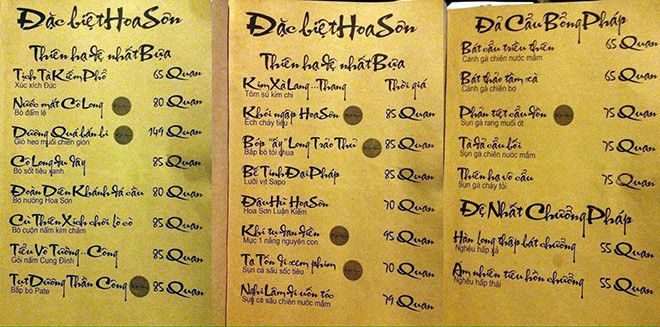 Đặc biệt Hoa Sơn
Thiên hạ đệ nhất Bựa
Tịch Tà Kiếm Phổ 65 Quan
Xúc xích Đức
Nước mắt Cô Long 80 Quan
Bò đẫm lệ
Dương Quá bắn bi 149 Quan
Giò heo muối chiên giòn
Cô Long đu dây 85 Quan
Bò sốt tiêu xanh
Đoàn Diên Khánh đá cầu 80 Quan
Bò nướng Hoa Sơn
Cu Thiên Xích chôi lò cò 85 Quan
Bò cuộn nấm kim châm
Tiểu Vô Tướng...Công 85 Quan
Gỏi nấm Cung Đình
Tụt Dương Thần Công 85 Quan
Bắp bò Pate
Đặc biệt Hoa Sơn
Thiên hạ đệ nhất Bựa
Kim Xà Lang...Thang Thời giá
Tôm sú kim chi
Khói ngập Hoa Sơn 85 Quan
Ếch cháy tiêu
Bóp "ấy" Long Trảo Thủ 85 Quan
Bắp bò tỏi chua
Bế Tinh Đại Pháp 85 Quan
Lưỡi vịt Sapo
Đậu Hũ Hoa Sơn 70 Quan
Hoa Sơn Luận Kiếm
Khi tự đan điền 95 Quan
Mực 1 nắng nguyên con
Tạ Tốn đi xem phim 70 Quan
Sụn cá sấu sốc tiêu
Nghi Lâm đi uốn tóc 79 Quan
Sụn cá sấu chiên nước mắm
Đả Cẩu Bổng Pháp
Bát cẩu triều thiên 65 Quan
Cánh gà chiên nước mắm
Bát thảo tầm xà 65 Quan
Cánh gà chiên bơ
Phản tiệt cẩu độn 75 Quan
Sụn gà rang muối ớt
Tà đả cẩu bối 75 Quan
Sụn gà chiên nước mắm
Thiên hạ vô cẩu 75 Quan
Sụn gà cháy tỏi
Đệ Nhất Chưởng Pháp
Hàn long thập bát chưởng 55 Quan
Nghêu hấp xả
Ám nhiên tiêu hồn chưởng 55 Quan
Nghêu hấp thái